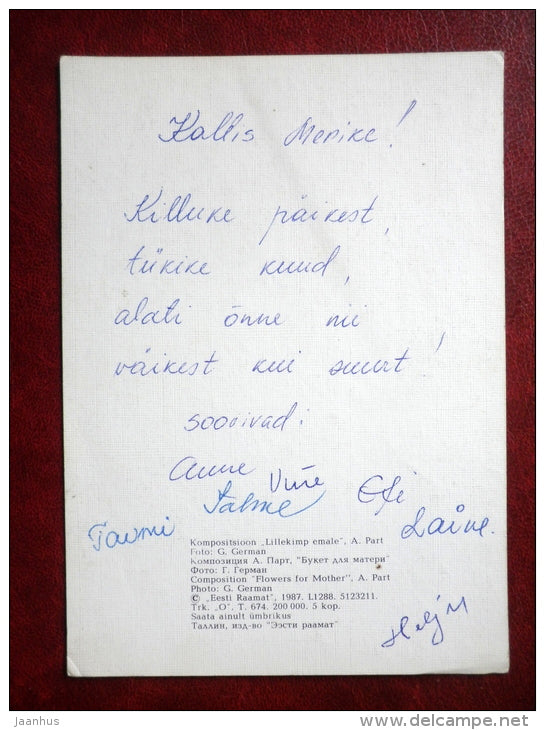 Kallis Merike!
Killuke päikest,
tükike kuud,
alati õnne nii
väikest kui suurt!
soovivad:
Anne
Viire
Salme
Efi
Taimi
Laine.
Kompositsioon „Lillekimp emale", A. Part
Foto: G. German
Композиция А. Парт, "Букет для матери"
Фото: Г. Герман
Composition "Flowers for Mother", A. Part
Photo: G. German
© „Eesti Raamat", 1987. L1288. 5123211.
Trk. „O". T. 674. 200 000. 5 kop.
Saata ainult ümbrikus
Таллин, изд-во "Ээсти раамат"
Helju
www.delcampe.net
haususv